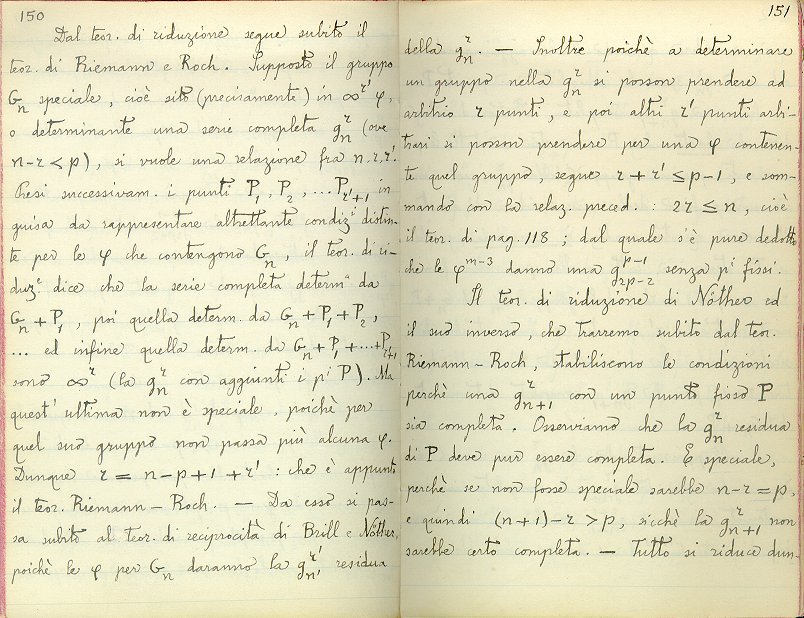 150
Dal teor. di riduzione segue subito il
teor. di Riemann e Roch. Supposto il gruppo
Gₙ speciale, cioè sito (precisamente) in ∞^r' φ,
o determinante una serie completa gₙʳ (ove
n-r<p), si vuole una relazione fra n, r, r'.
Presi successivam. i punti P₁, P₂, ... P_r'+1 in
guisa da rappresentare altrettante condizⁱ distin-
te per le φ che contengono Gₙ, il teor. di ri-
duzᵉ dice che la serie completa determᵗᵃ da
Gₙ+P₁, poi quella determ. da Gₙ+P₁+P₂,
... ed infine quella determ. da Gₙ+P₁+...+P_r'+1
sono ∞ʳ (la gₙʳ con aggiunti i pⁱ P). Ma
quest'ultima non è speciale, poichè per
quel suo gruppo non passa più alcuna φ.
Dunque r = n-p+1+r' : che è appunto
il teor. Riemann-Roch. — Da esso si pas-
sa subito al teor. di reciprocità di Brill e Nöther,
poichè le φ per Gₙ daranno la g_n'^r' residua
151
della gₙʳ. — Inoltre poichè a determinare
un gruppo nella gₙʳ si posson prendere ad
arbitrio r punti, e poi altri r' punti arbi-
trari si posson prendere per una φ contenen-
te quel gruppo, segue r+r' ≤ p-1, e som-
mando con la relaz. preced. : 2r ≤ n, cioè
il teor. di pag. 118 ; dal quale s'è pure dedotto
che le φᵐ⁻³ danno una g_2p-2^p-1 senza pⁱ fissi.
Il teor. di riduzione di Nöther ed
il suo inverso, che trarremo subito dal teor.
Riemann-Roch, stabiliscono le condizioni
perchè una g_n+1^r con un punto fisso P
sia completa. Osserviamo che la gₙʳ residua
di P deve pur essere completa. È speciale,
perchè se non fosse speciale sarebbe n-r=p,
e quindi (n+1)-r>p, sicchè la g_n+1^r non
sarebbe certo completa. — Tutto si riduce dun-